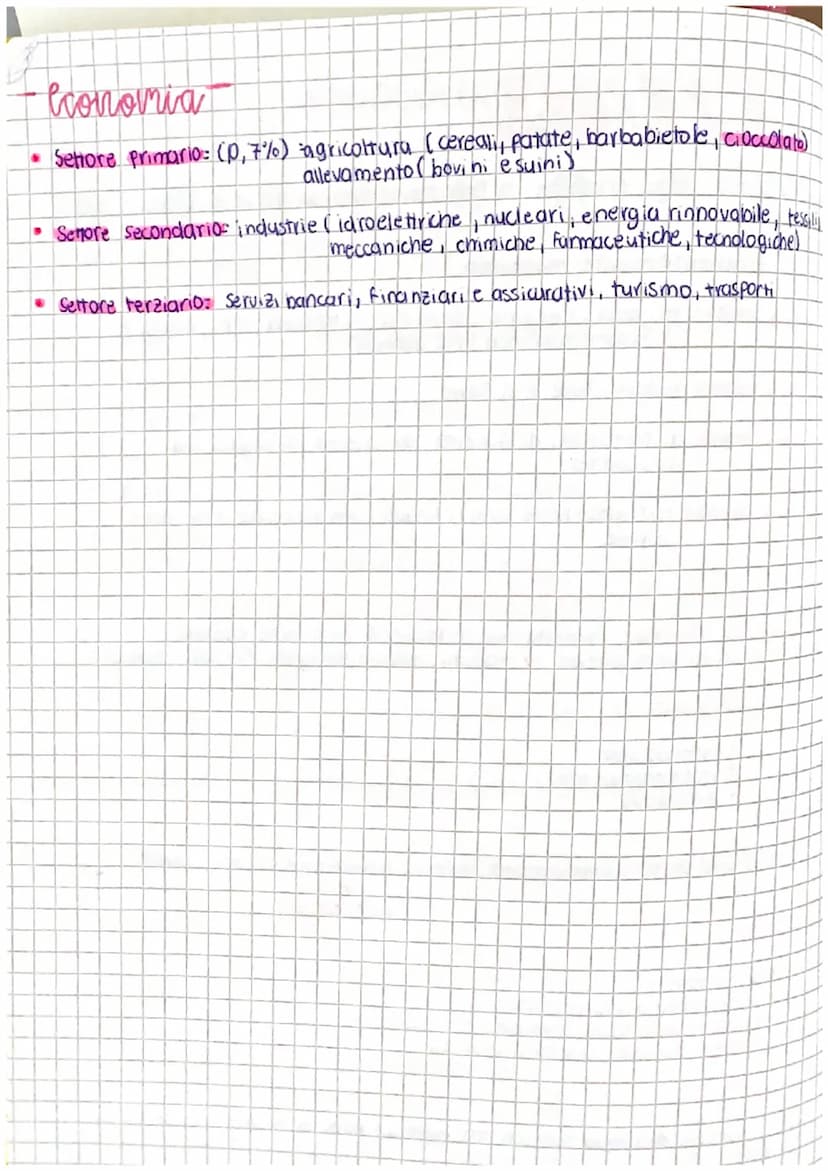 - Economia -
• Settore primario: (0,7%) agricoltura (cereali, patate, barbabietole, cioccolato)
allevamento (bovini e suini)
• Settore secondario: industrie (idroelettriche, nucleari, energia rinnovabile, tessili,
meccaniche, chimiche, farmaceutiche, tecnologiche)
• Settore terziario: servizi bancari, finanziari e assicurativi, turismo, trasporti